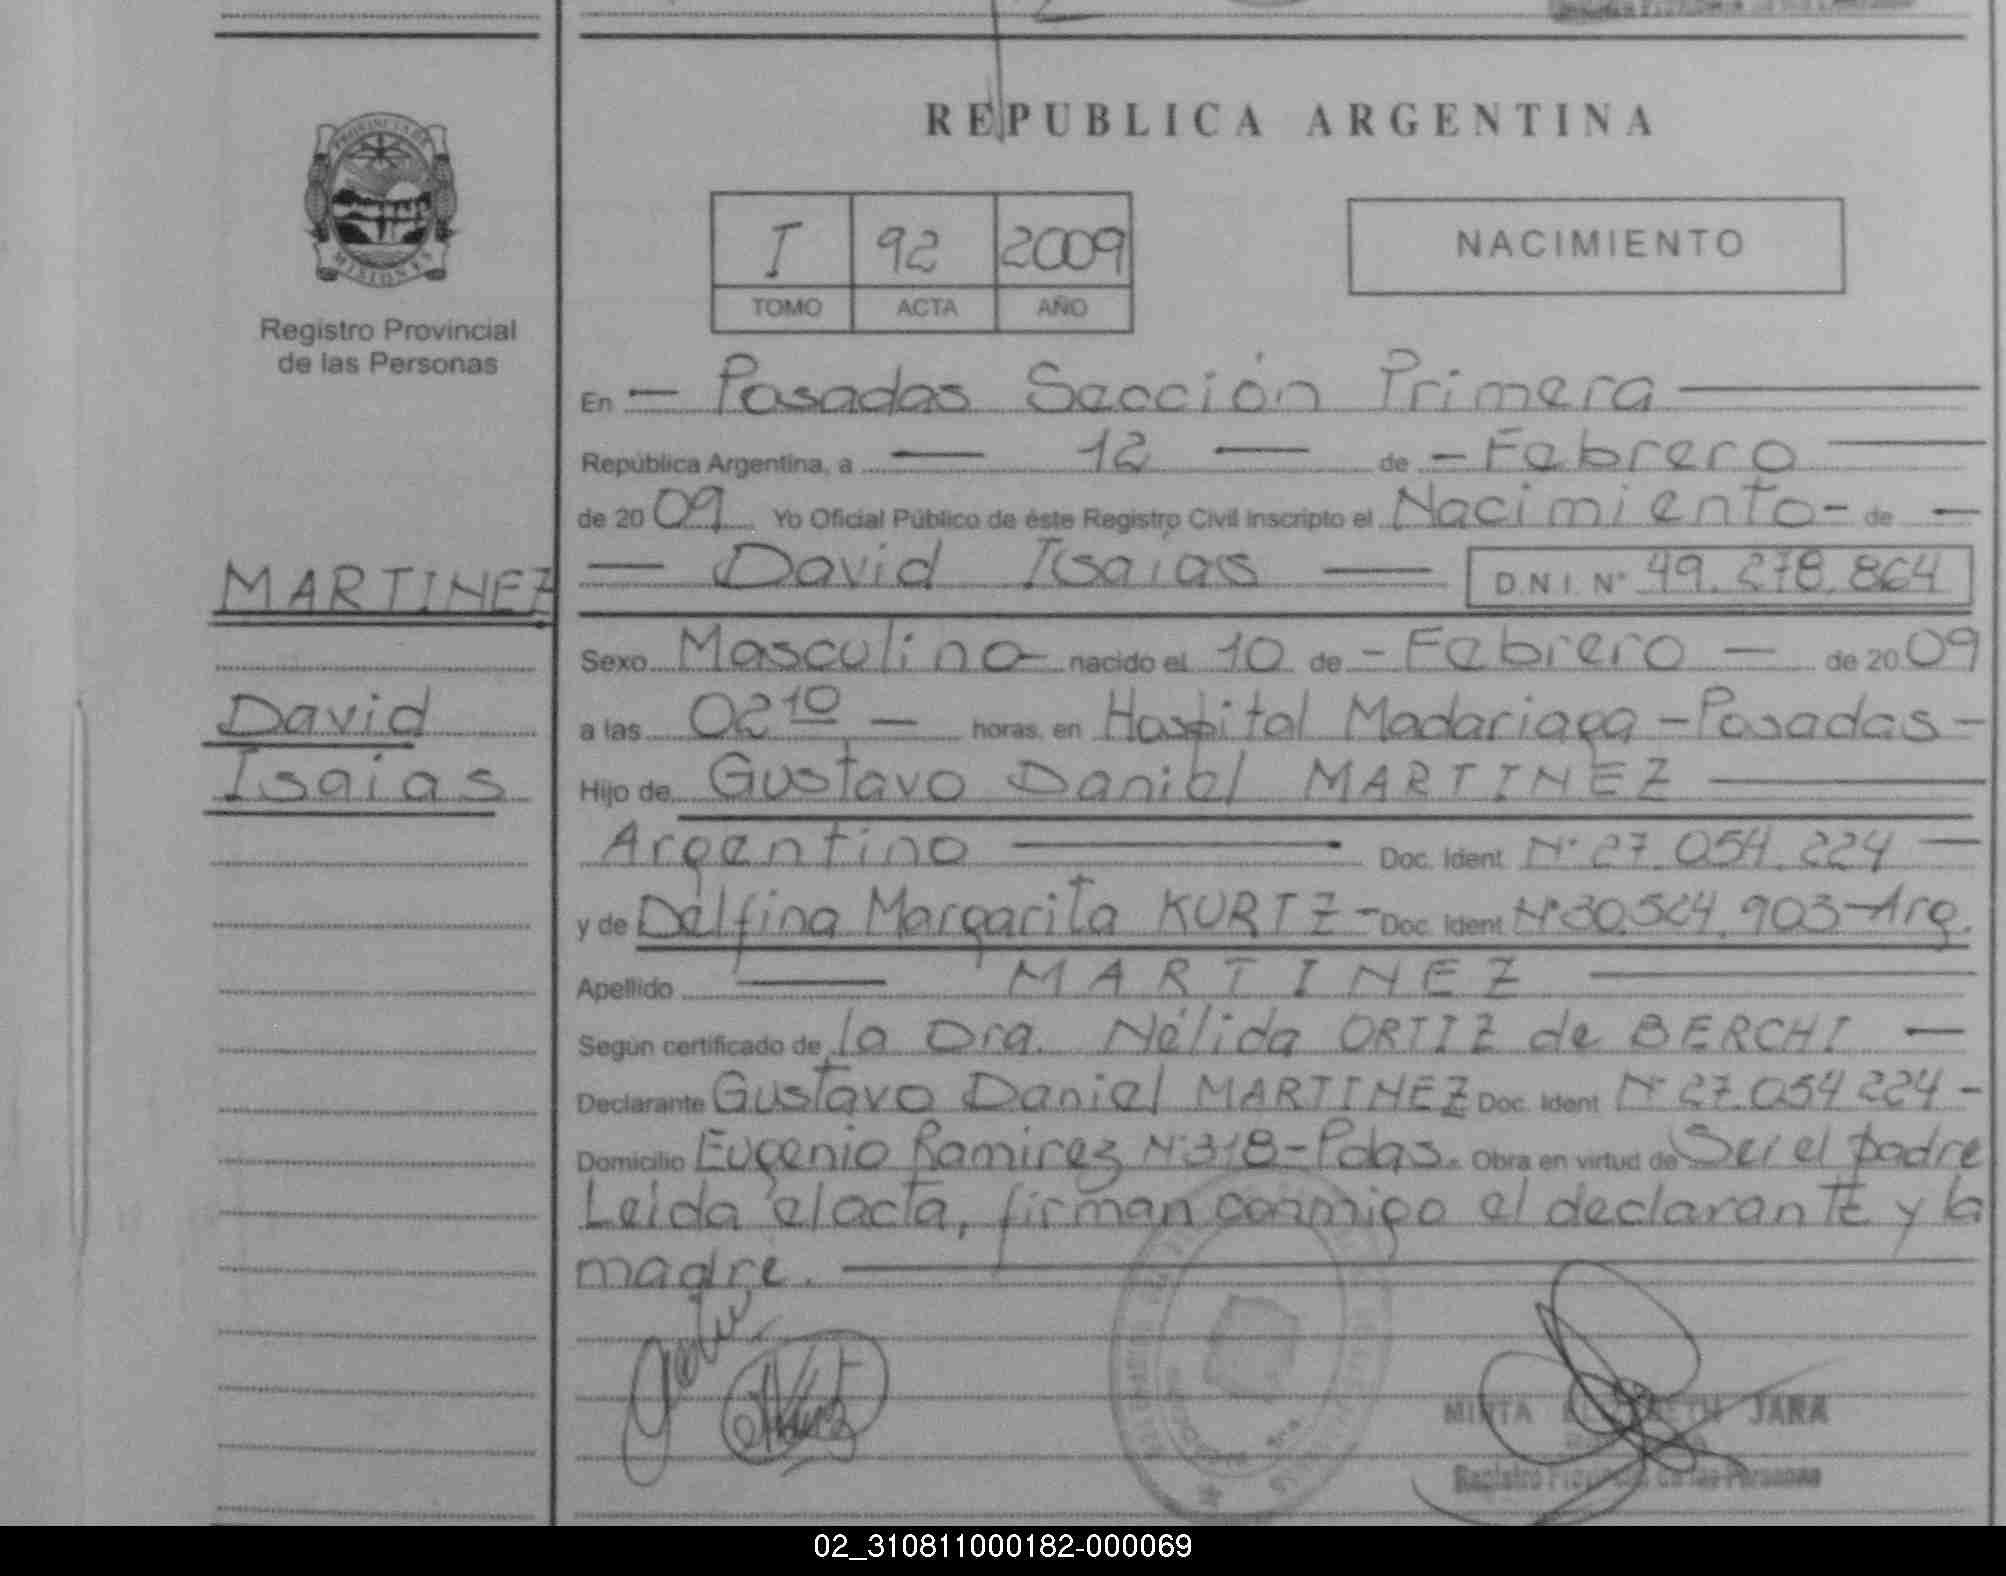 REPUBLICA ARGENTINA
PROVINCIA DE
MISIONES
Registro Provincial
de las Personas
I 92 2009
TOMO ACTA AÑO
NACIMIENTO
En — Posadas Sección Primera —
República Argentina, a — 12 — de — Febrero —
de 20 09 Yo Oficial Público de éste Registro Civil Inscripto el Nacimiento - de —
— David Isaias — D.N.I. Nº 49.278.864
MARTINEZ
David
Isaias
Sexo Masculino — nacido el 10 de — Febrero — de 20 09
a las 02 10 — horas, en Hospital Madariaga - Posadas -
Hijo de Gustavo Daniel MARTINEZ —
Argentino — Doc. Ident Nº 27.054.224 —
y de Delfina Margarita KURTZ - Doc. Ident Nº 30.564.903 - Arg.
Apellido — MARTINEZ —
Según certificado de la Dra. Nélida ORTIZ de BERCHI —
Declarante Gustavo Daniel MARTINEZ Doc. Ident Nº 27.054 224 -
Domicilio Eugenio Ramirez Nº 318 - Pdas. Obra en virtud de Ser el padre
Leida el acta, firman conmigo el declarante y la
madre. —
MIRTA ELIZABETH JARA
Registro Provincial de las Personas
02_310811000182-000069